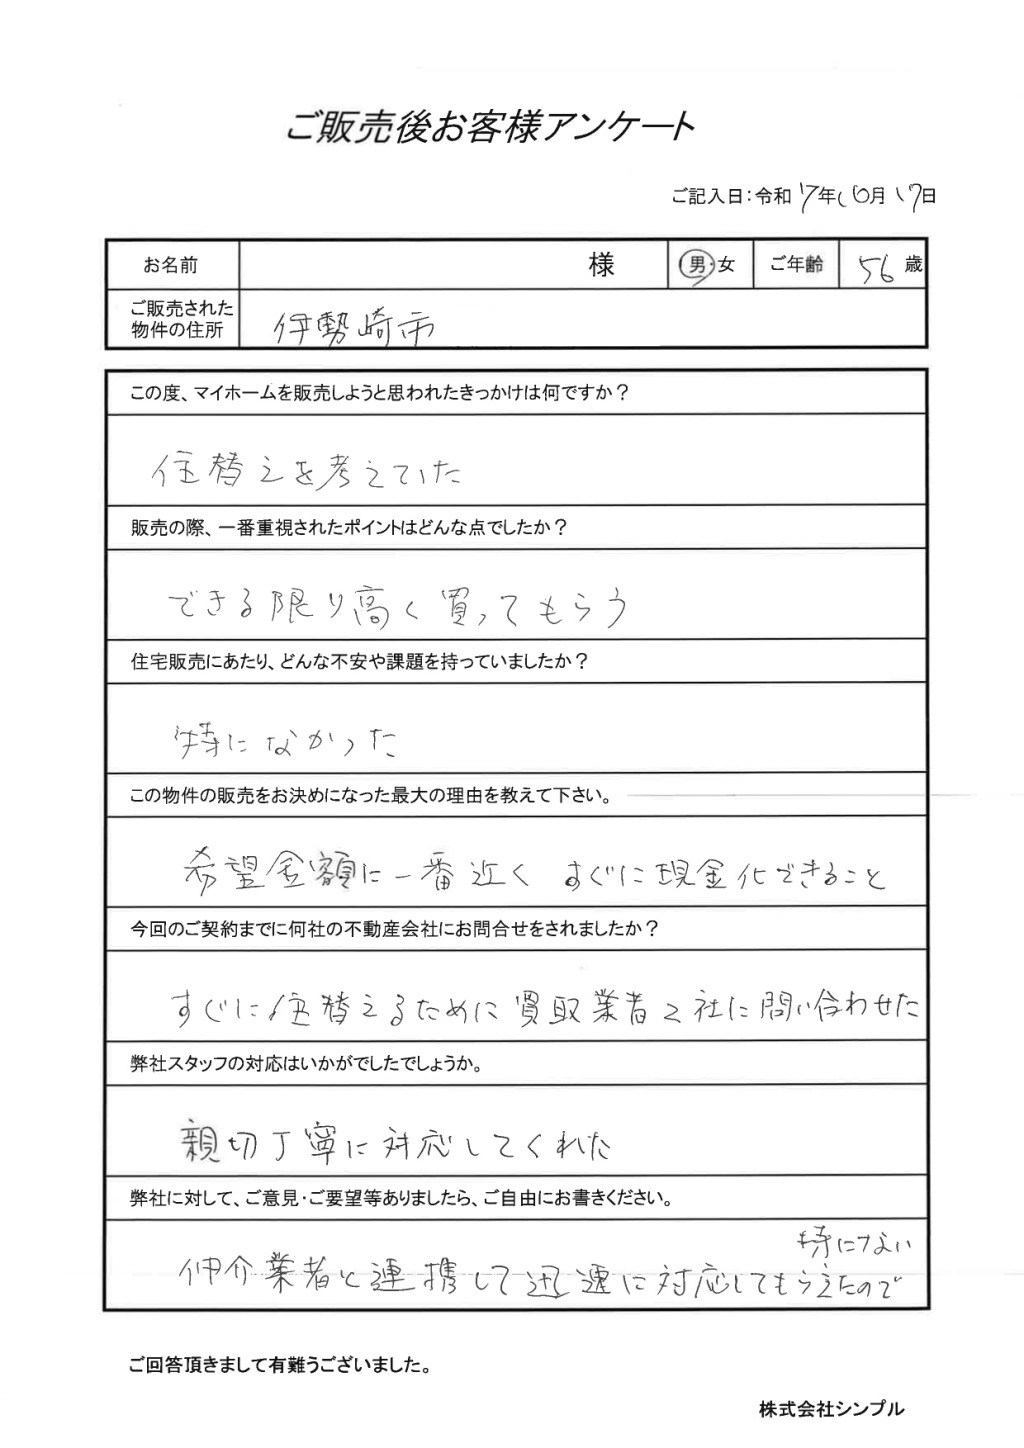 ご販売後お客様アンケート
ご記入日：令和 7年 10月 17日
お名前 様 男・女 ご年齢 56 歳
ご販売された
物件の住所 伊勢崎市
この度、マイホームを販売しようと思われたきっかけは何ですか？
住替えを考えていた
販売の際、一番重視されたポイントはどんな点でしたか？
できる限り高く買ってもらう
住宅販売にあたり、どんな不安や課題を持っていましたか？
特になかった
この物件の販売をお決めになった最大の理由を教えて下さい。
希望金額に一番近く すぐに現金化できること
今回のご契約までに何社の不動産会社にお問合せをされましたか？
すぐに住替えるために買取業者2社に問い合わせた
弊社スタッフの対応はいかがでしたでしょうか。
親切丁寧に対応してくれた
弊社に対して、ご意見・ご要望等ありましたら、ご自由にお書きください。
仲介業者と連携して迅速に対応してもらえたので
特にない
ご回答頂きまして有難うございました。
株式会社シンプル